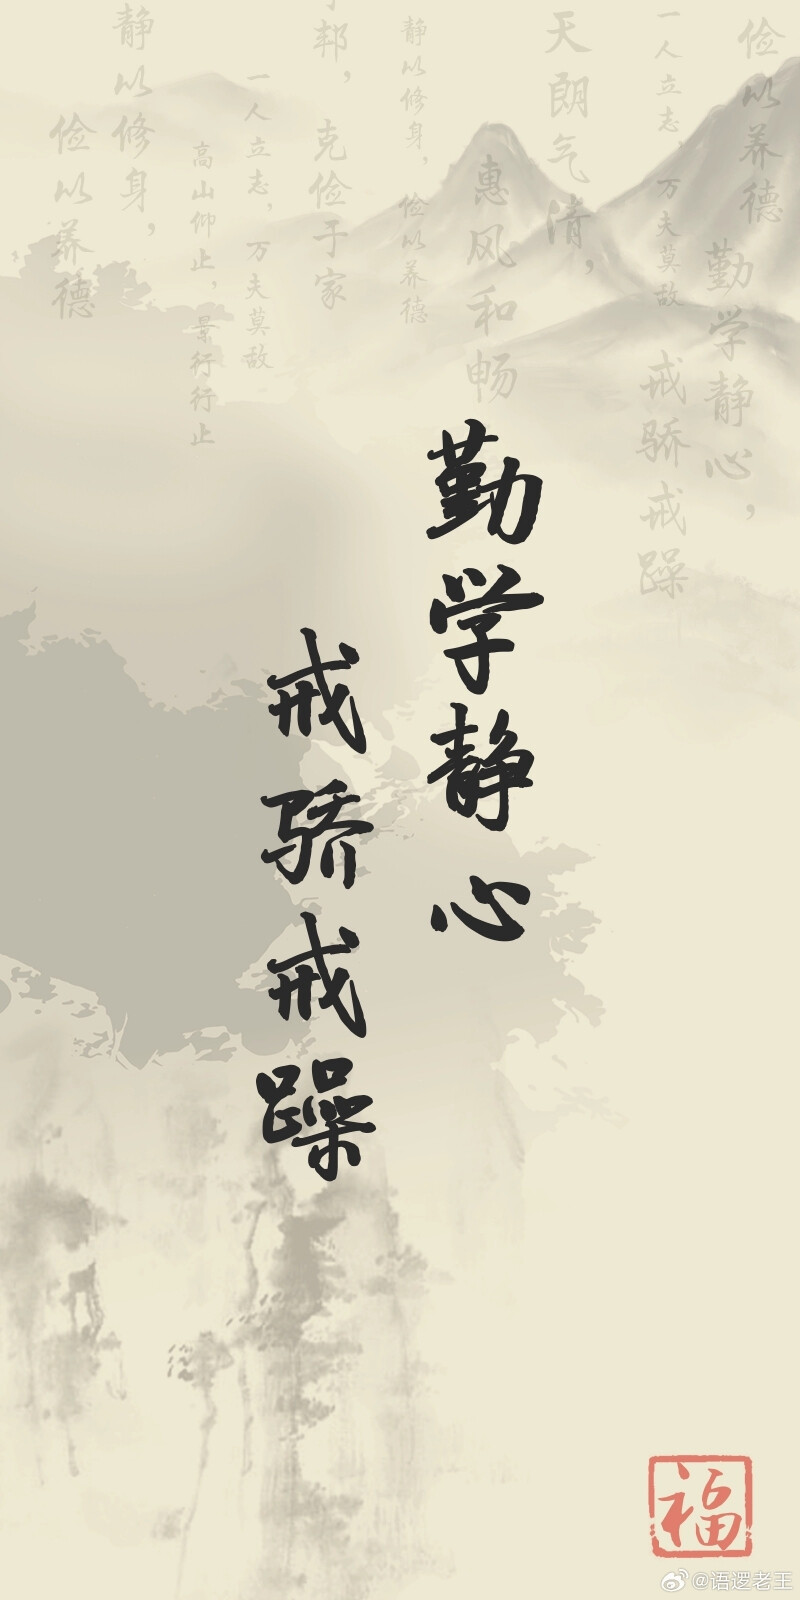 勤学静心
戒骄戒躁
俭以养德
勤学静心，
戒骄戒躁
一人立志，万夫莫敌
天朗气清，
惠风和畅
静以修身，俭以养德
邦，克俭于家
一人立志，万夫莫敌
高山仰止，景行行止
静以修身，
俭以养德
福
@语逻老王